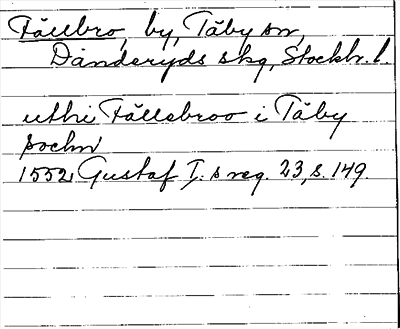 Fällbro, by, Täby sn,
Danderyds skg, Stockh. l.
uthi Fällebroo i Täby
sochn
1552 Gustaf I:s reg. 23, s. 149.